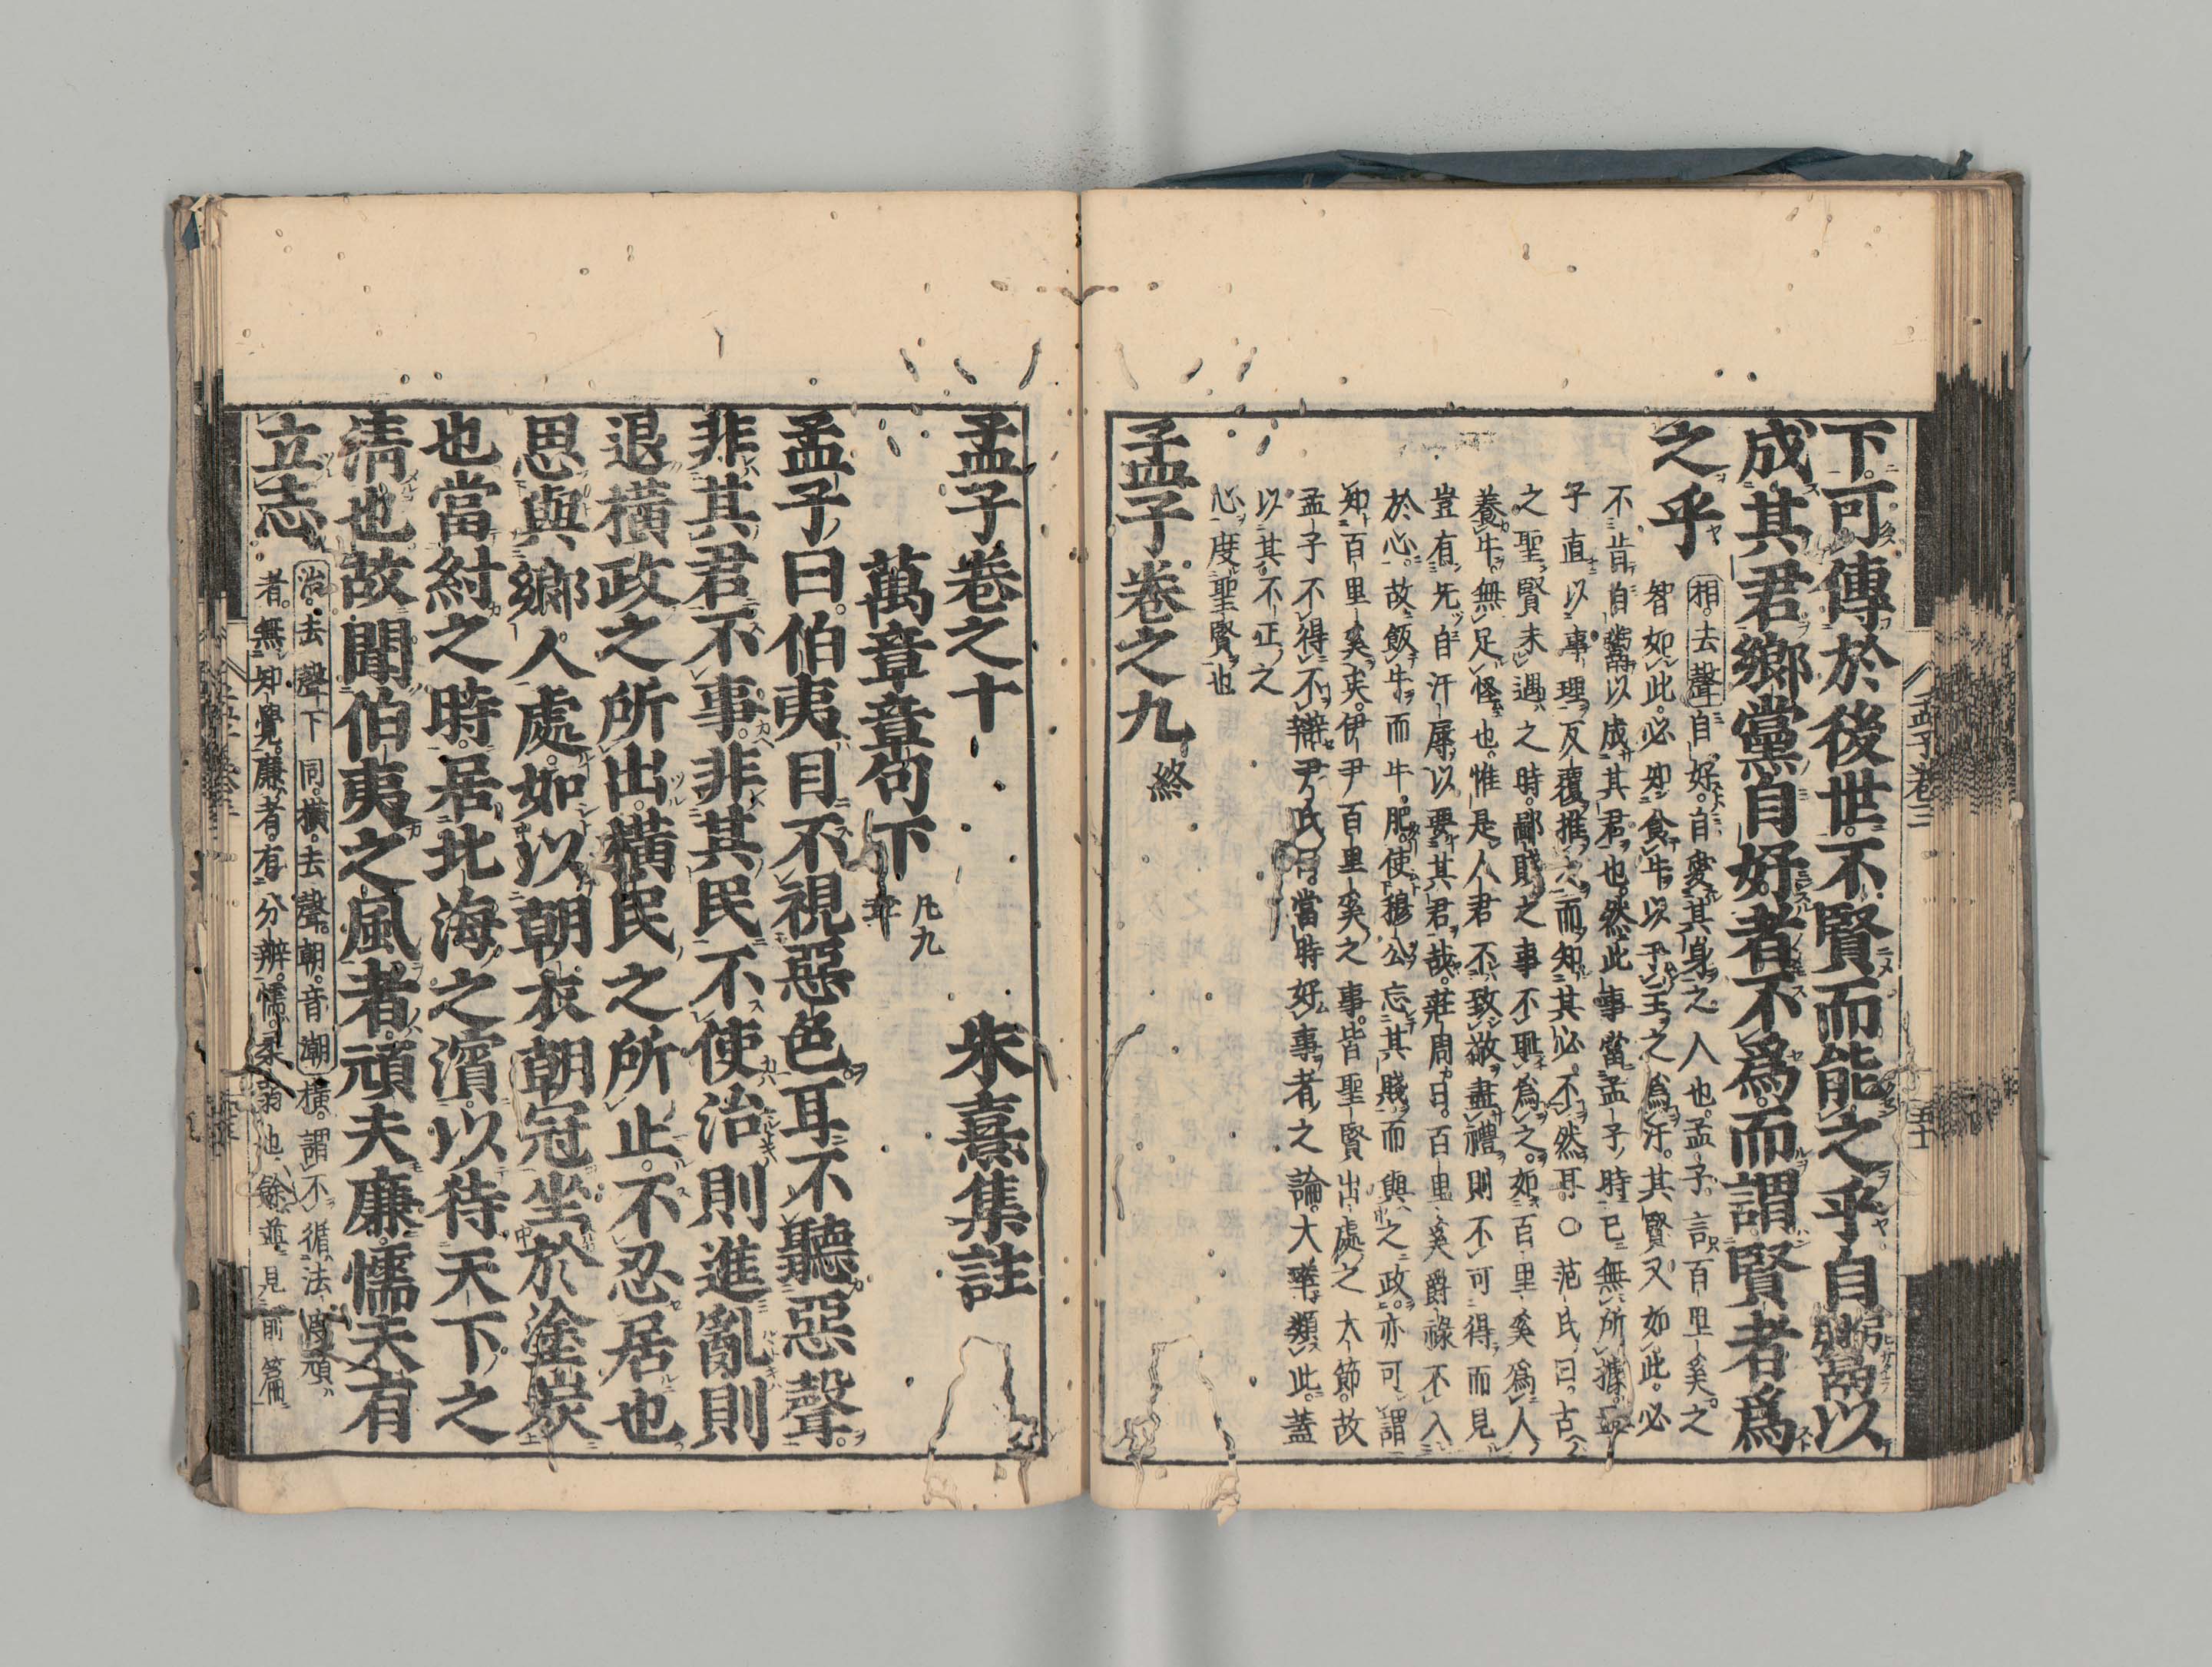 下可傳於後世不賢而能之乎自鬻以
成其君鄉黨自好者不爲而謂賢者爲
之乎
相去聲自好自愛其身之人也孟子言百里奚之
智如此必知食牛以干主之爲汙其賢又如此必
不肯自鬻以成其君也然此事當孟子時已無所據孟
子直以事理反覆推之而知其必不然耳○范氏曰古
之聖賢未遇之時鄙賤之事不恥爲之如百里奚爲人
養牛無足怪也惟是人君不致敬盡禮則不可得而見
豈有先自汙辱以要其君哉莊周曰百里奚爵祿不入
於心故飯牛而牛肥使穆公忘其賤而與之政亦可謂
知百里奚矣伊尹百里奚之事皆聖賢出處之大節故
孟子不得不辯尹氏曰當時好事者之論大率類此蓋
以其不正之
心度聖賢也
孟子卷之九 終
孟子卷三
五十
孟子卷之十 朱熹集註
萬章章句下 凡九章
孟子曰伯夷目不視惡色耳不聽惡聲
非其君不事非其民不使治則進亂則
退橫政之所出橫民之所止不忍居也
思與鄉人處如以朝衣朝冠坐於塗炭
也當紂之時居北海之濱以待天下之
淸也故聞伯夷之風者頑夫廉懦夫有
立志
治去聲下同橫去聲朝音潮橫謂不循法度頑
者無知覺廉者有分辨懦柔弱也餘並見前篇